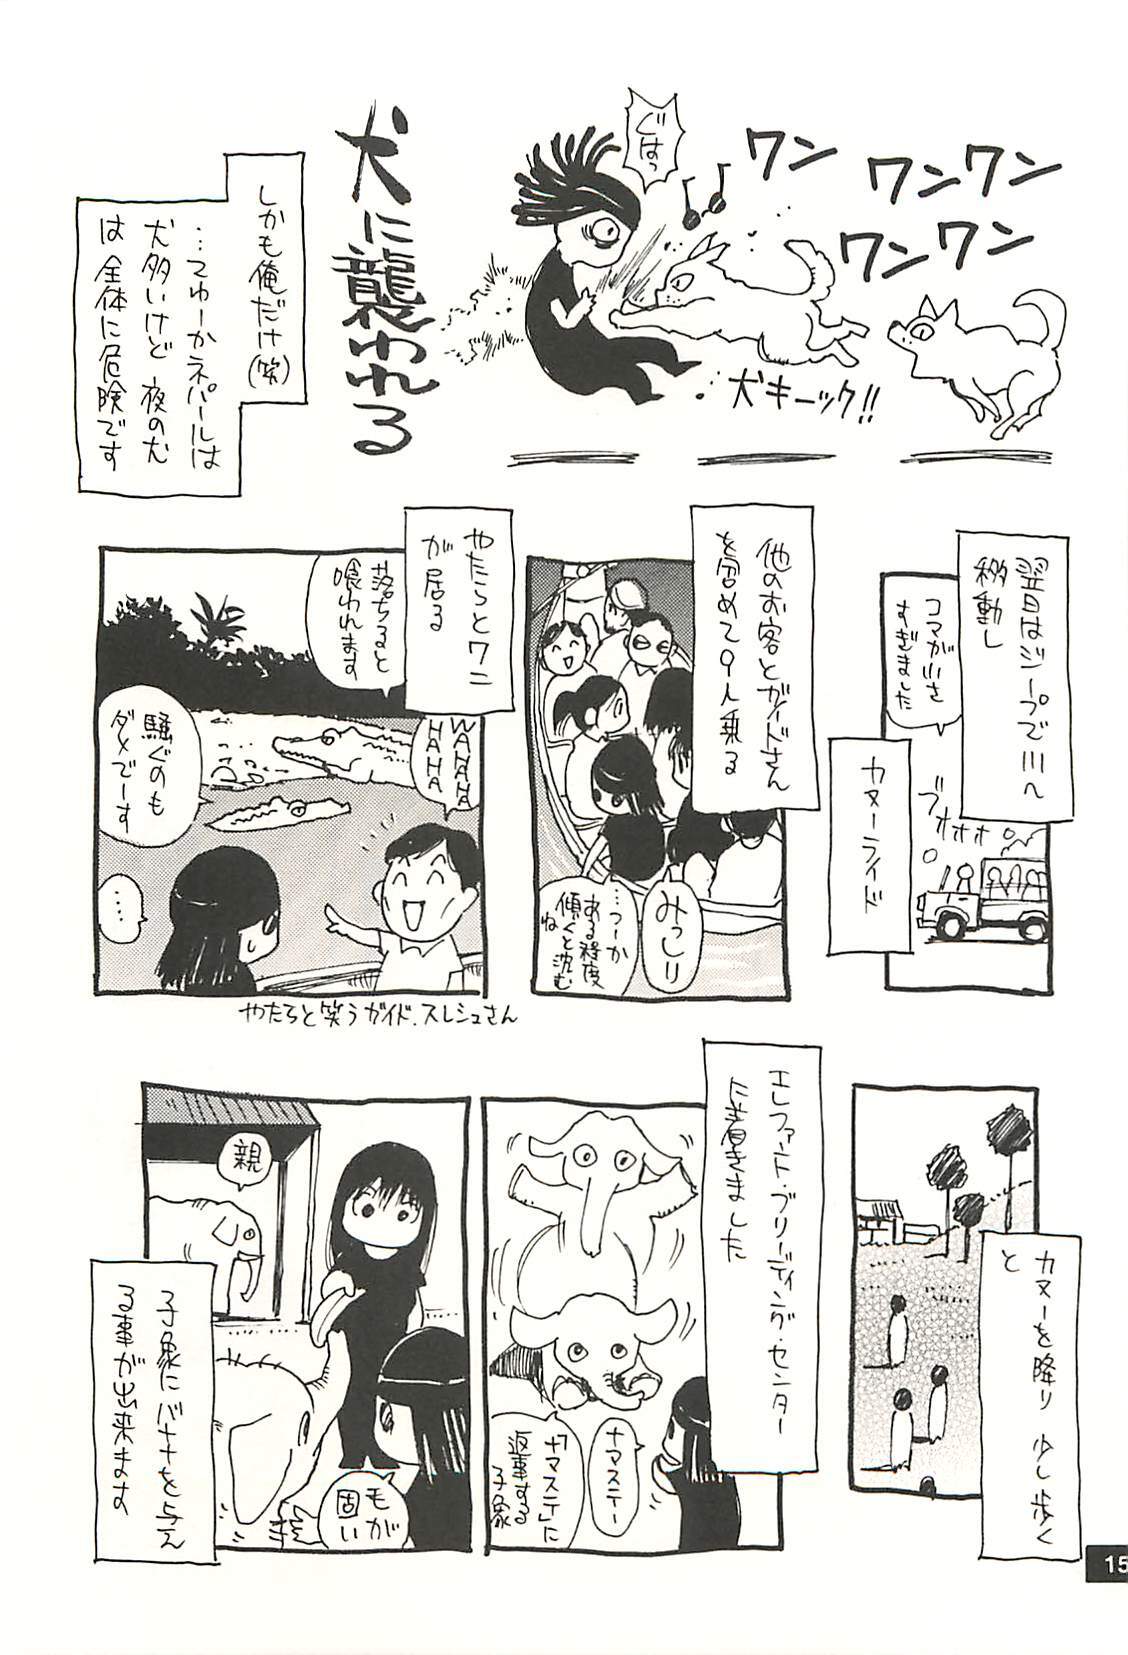 ワン
ワンワン
ワンワン
ぐはっ
犬キーック!!
犬に襲われる
しかも俺だけ(笑)
…てゆーかネパールは
犬多いけど 夜の犬
は全体に危険です
翌日はジープで川へ
移動し
コマが小さ
すぎました
ブオオオ
カヌーライド
他のお客とガイドさん
を含めて9人乗る
みっしり
…つーか
ある程度
傾くと沈む
ね
やたらとワニ
が居る
落ちると
喰われます
WAHAHA
HAHA
騒ぐのも
ダメでーす
…
やたらと笑うガイド、スレシュさん
カヌーを降り 少し歩く
と
エレファント・ブリーディング・センター
に着きました
ナマステー
「ナマステ」に
返事する
子象
親
子象にバナナを与え
る事が出来ます
毛が
固い
15